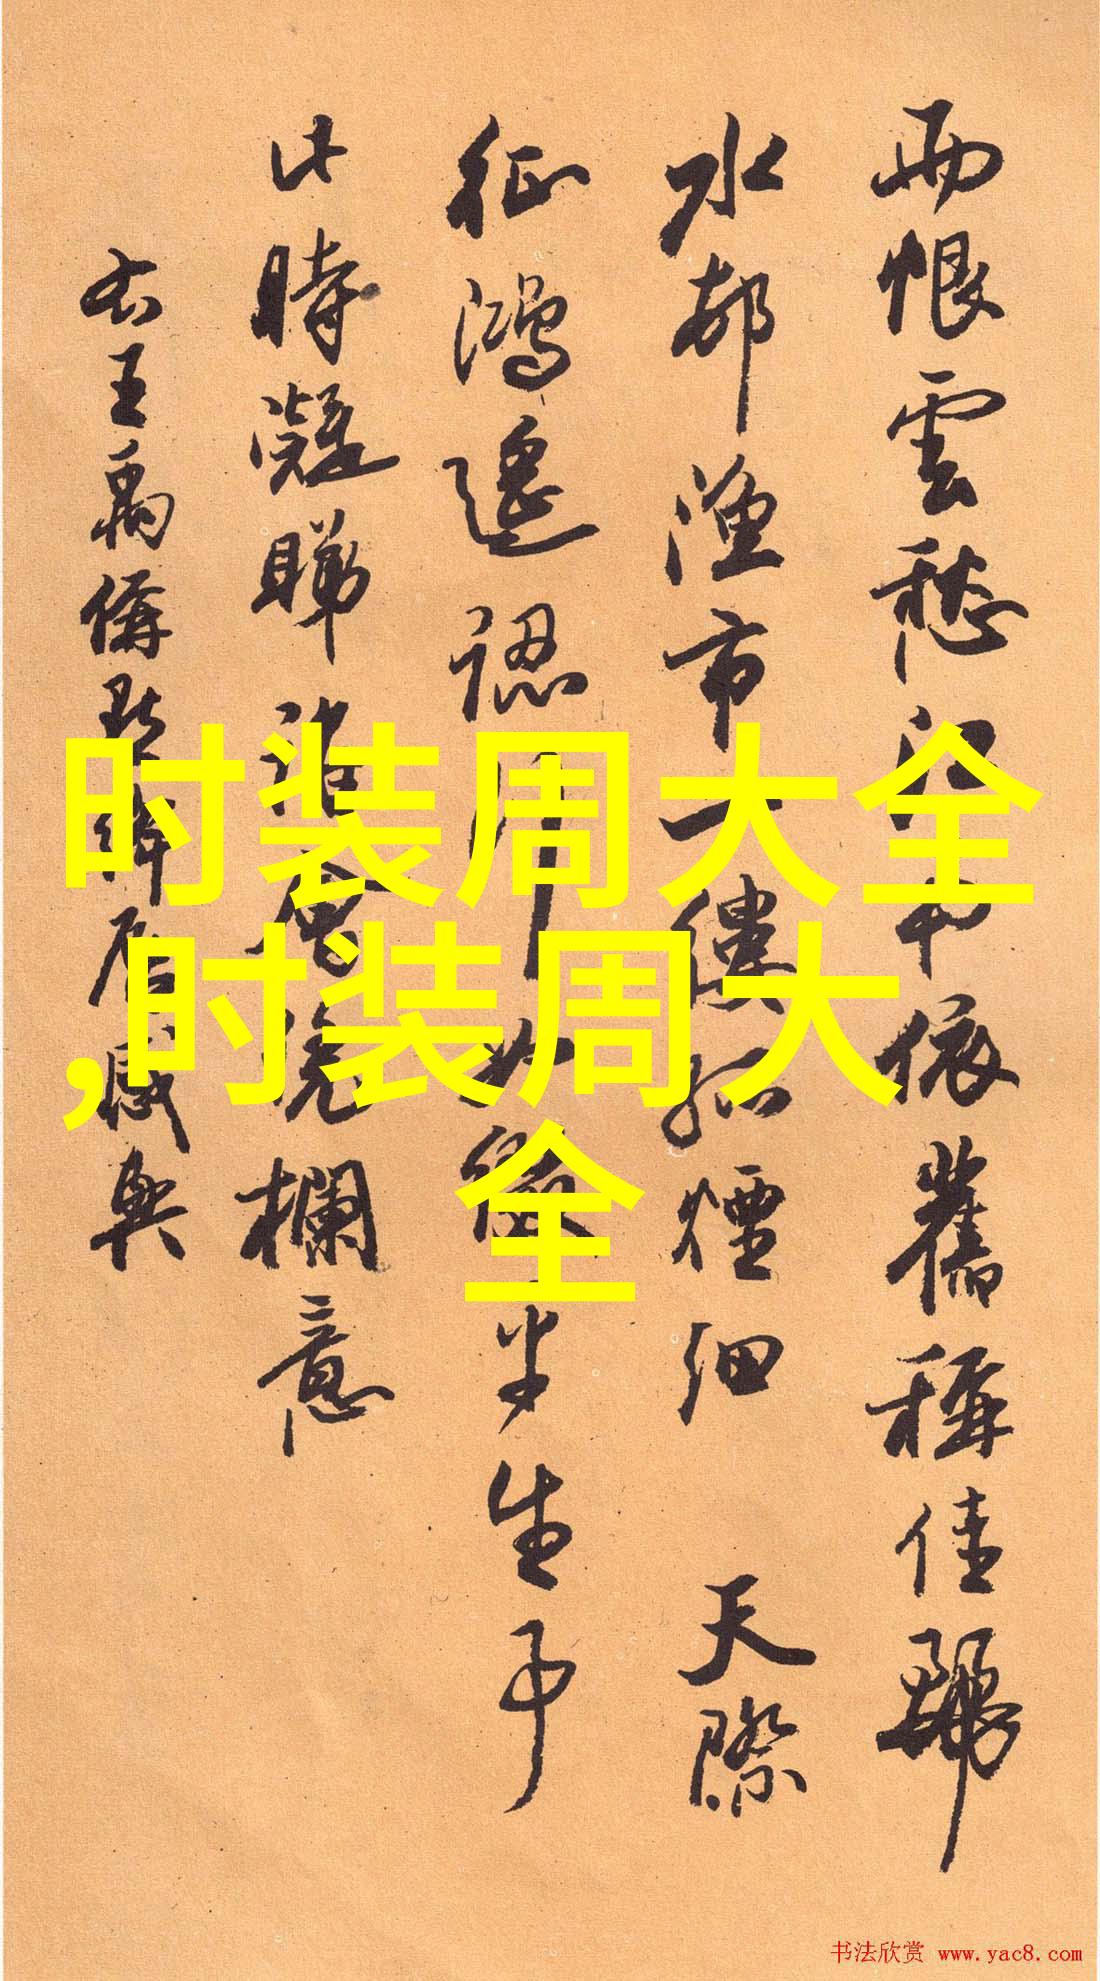 雨恨雲愁江南依舊稱佳麗
水邨漁市一縷孤煙細 天際
征鴻遙認行如綴平生事
此時凝睇誰會凭欄意
右王禹偁點絳唇感興
时装周大全
,时装周大
全
书法欣赏 www.yac8.com